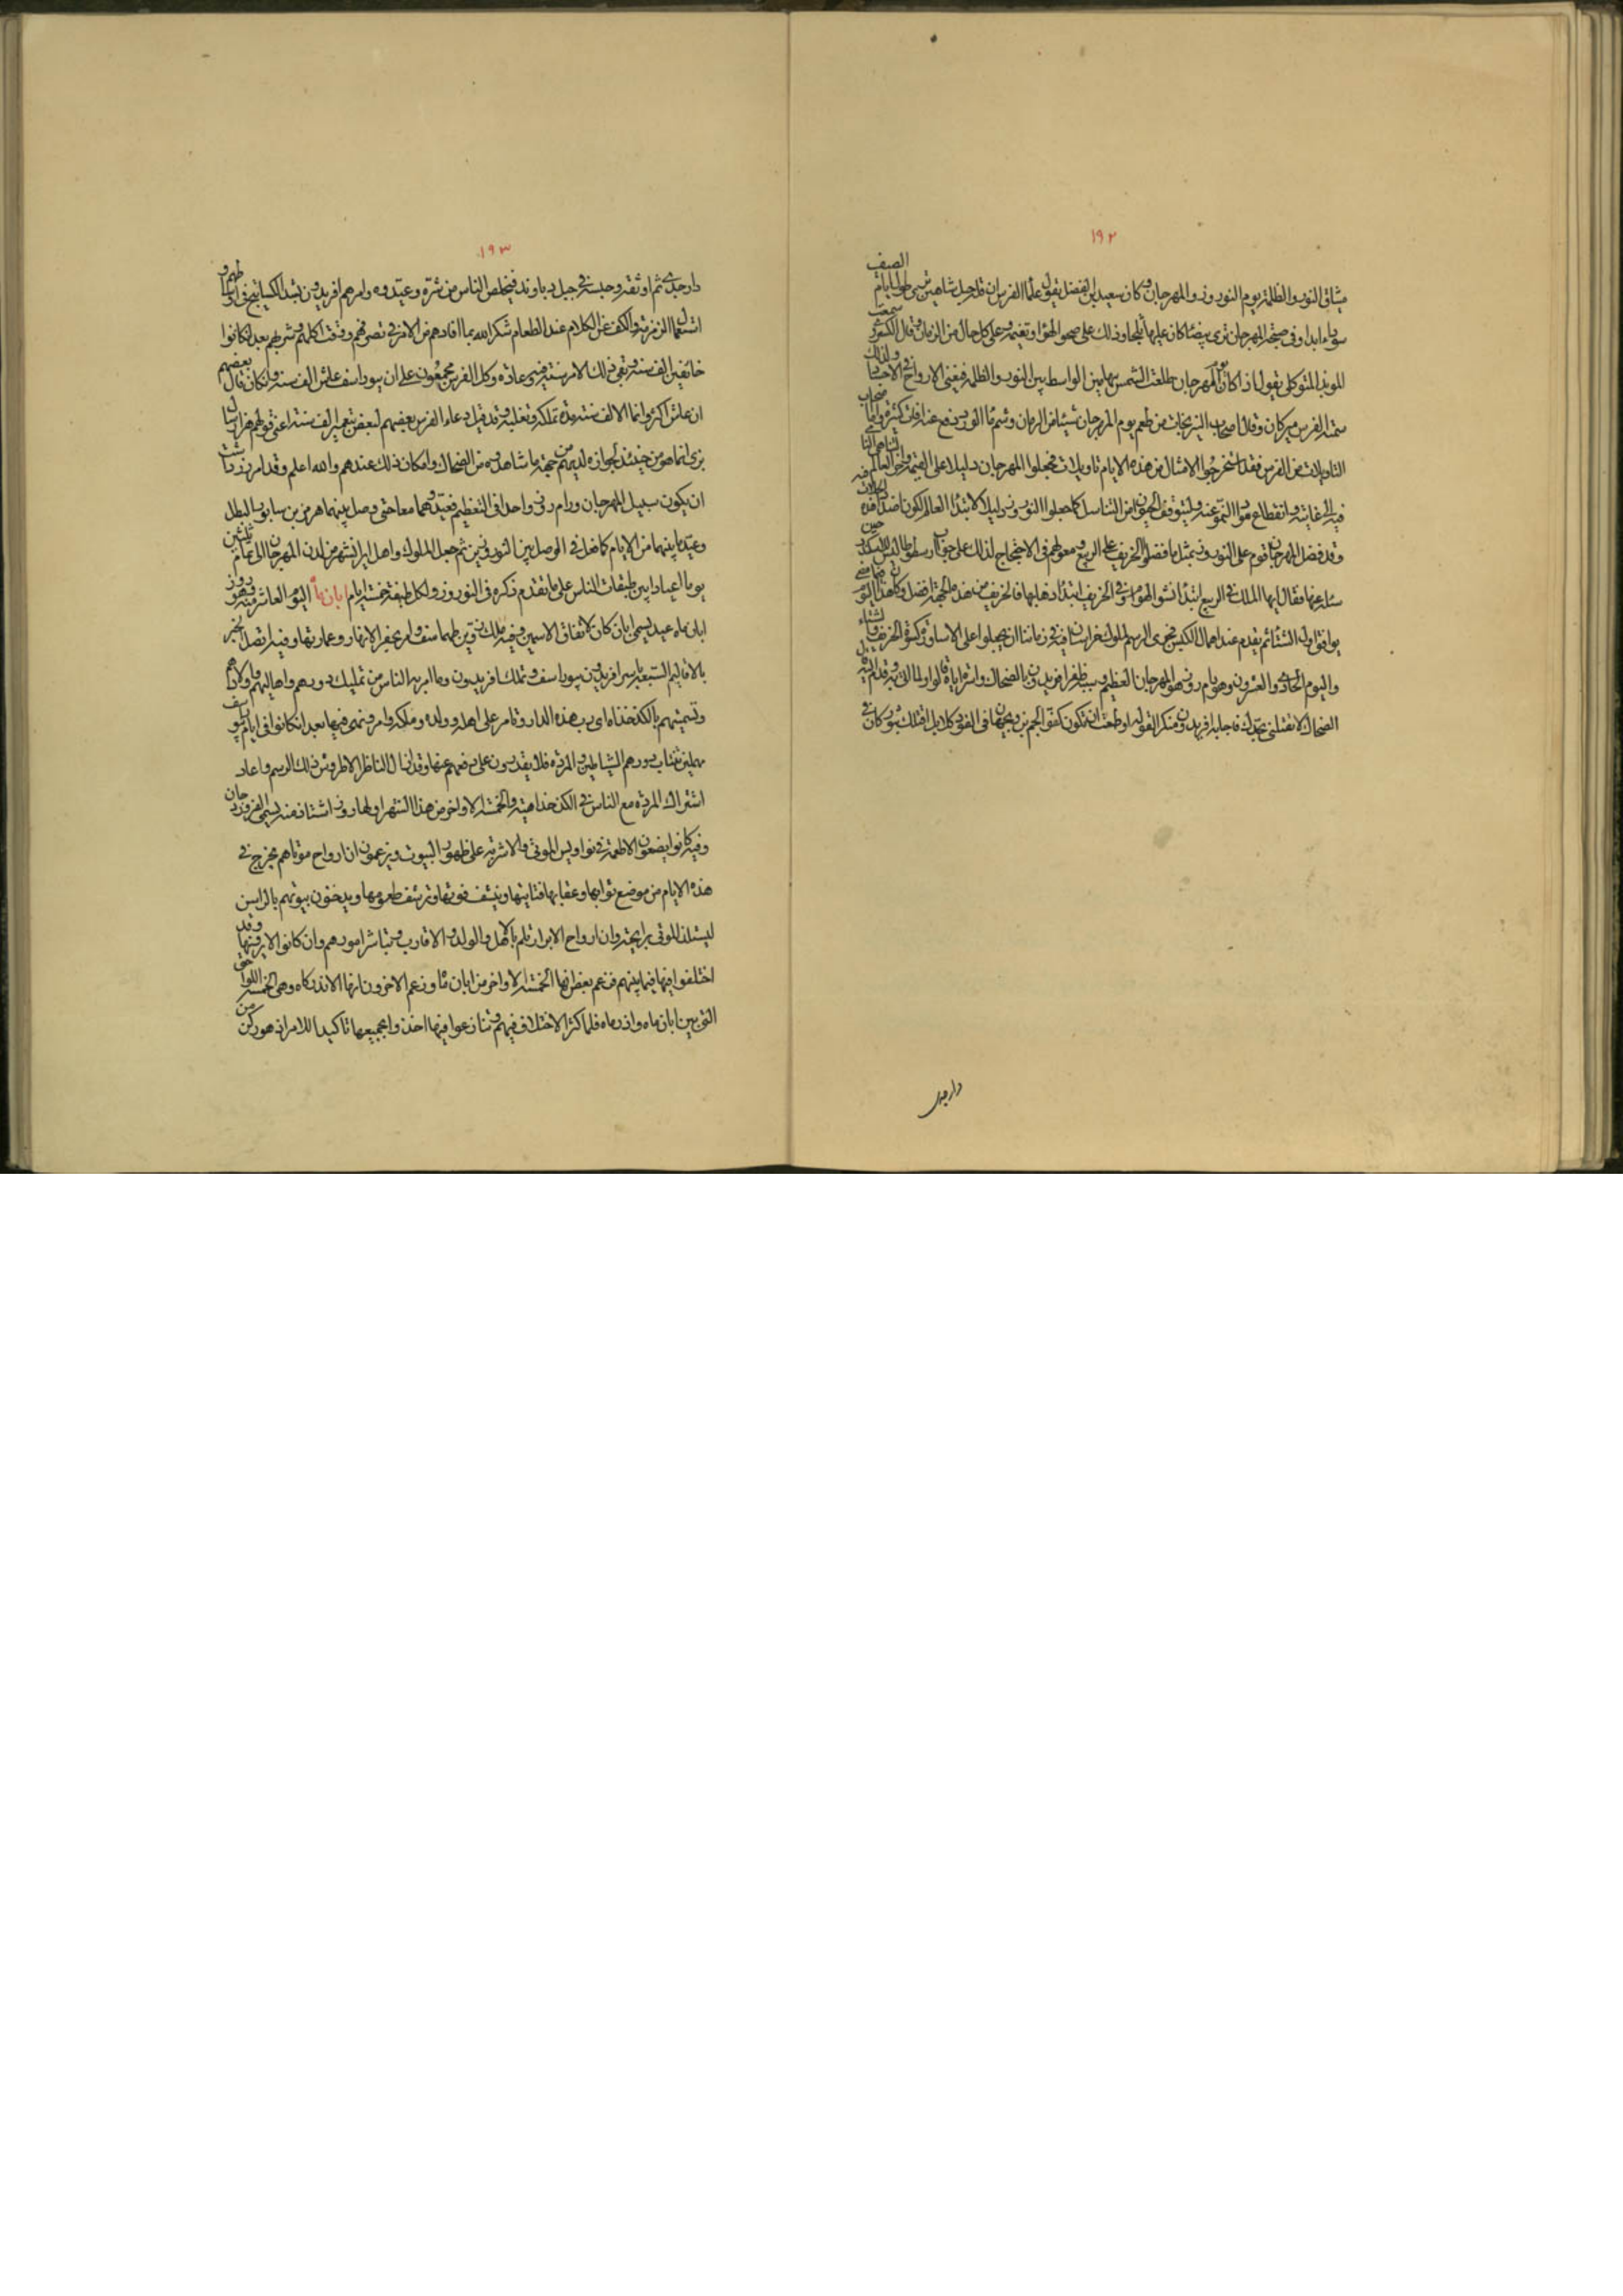 ١٩٢
ميثاق النور والظلمة يوم النوروز والمهرجان وكان سعيد بن الفضل يقول علما الفرس ان قلة جبل شاهين ترى طول ايام الصيف
سوداء ابدا وفي صبيحة المهرجان ترى بيضا كان عليها ثلجا وذلك على صحو الهوا وتغيمه وعلى كل حال من الزمان وقال الكسروى سمعت
الموبذ المتوكلى يقول اذا كان يوم المهرجان طلعت الشمس بهامين الواسط بين النور والظلمة فيفنى الارواح في الاجساد ولذلك
سمته الفرس ميركان وقال اصحاب النيرنجات من طعم يوم المهرجان شيئا من الرمان وشم ماالورد دفع عنه افات كثيرة واما اصحاب
التاويلات من الفرس فقد استخرجوا لامثال من هذه الايام تاويلات فجعلوا المهرجان دليلا على القيمة واخر العالم
فيه الى غايته وانقطاع مواد النمو عنه وليتوقف الحيوان من التناسل كما جعلوا النوروز دليلا لابتداء العالم لكون اضداد هذه
وقد فضل المهرجان قوم على النوروز بمثل ما فضلوا الخريف على الربيع ومعولهم في الاحتجاج لذلك على جواب ارسطوطاليس للاسكندر حين
سئله عنها فقال ايها الملك في الربيع ابتداء نشو الهوام وفي الخريف ابتداء ذهابها فالخريف من هذه الجهة افضل وكان هذا اليوم فيما مضى
يوافق اول الشتاء ثم يقدم عند اهمال الكبس فجرى الرسم لملوك خراسان فيه في زماننا ان يخلعوا على الاساورة كسوة الخريف والشتاء
واليوم الحادى والعشرون وهو رام روز هو المهرجان العظيم وسببه ظفر افريدون بالضحاك واسره اياه قالوا ولما اتى به قدم اليه
الضحاك لا تقتلنى بجدك فاجابه افريدون منكرا لقوله او طمعت ان تكون كفوا لجم بن ويجهان في القود كلا بل اقتلك بثور كان في
دار جدى
١٩٣
دار جدى ثم اوثقه وحبسه في جبل دباوند فتخلص الناس من شره وعيدوه وامرهم افريدون بشد الكساتيج في اوساطهم و
استعمال الزمزمة والكف عن الكلام عند الطعام شكرا لله بما افادهم من الامر في تصرفهم ووقت اكلهم وشربهم بعد ان كانوا
خائفين الف سنة وبقى ذلك الامر سنة فيهم وعادة وكل الفرس مجمعون على ان بيوراسف عاش الف سنة وان كان قال بعضهم
ان عاش اكثر وانما الالف سنة مدة تملكه وتغلبه وقد قيل دعاء الفرس بعضهم لبعض بتعمير الف سنة اعنى قولهم هزار سال
بزى انما هو من حينئذ لجوازه لديهم من جهة ما شاهدوه من الضحاك وامكان ذلك عندهم والله اعلم وقد امر زردشت
ان يكون سبيل المهرجان ورام روز واحدا في التعظيم فعيدوهما معا حتى وصل بينهما هرمز بن سابور البطل
وعيد ما بينهما من الايام كما فعل في الوصل بين النوروزين ثم جعل الملوك واهل ايرانشهر من لدن المهرجان الى تمام ثلثين
يوما اعيادا بين طبقات الناس على ما تقدم ذكره في النوروز ولكل طبقة خمسة ايام ابان ماه اليوم العاشر منه وهو روز
ابان ماه عيد يسمى ابان كان لاتفاق الاسمين وفيه ملك زو بن طهماسف وامر بحفر الانهار وعمارتها وفيه اتصل الخبر
بالاقاليم السبعة باسر افريدون بيوراسف وتملك افريدون وما امر به الناس من تمليك دورهم واهاليهم واولادهم
وتسميتهم بالكذخذاه اى رب هذه الدار وتامر على اهله وولده وملكه وامره ونهى فيها بعد ان كانوا في ايام بيوراسف
مهملين تنتاب دورهم الشياطين والمردة فلا يقدرون على دفعهم عنها وقد ازال الناصر الاطروش ذلك الرسم واعاد
اشتراك المردة مع الناس في الكذخذاهية والخمسة الاواخر من هذا الشهر اولها روز اشتاذ منه يسمى الفروردجان
وفيه كانوا يضعون الاطعمة في نواويس الموتى والاشربة على ظهور البيوت ويزعمون ان ارواح موتاهم تخرج في
هذه الايام من موضع ثوابها وعقابها فتاتيها وينشف قوتها وترتشف طعومها ويدخنون بيوتهم بالراسن
ليستلذ الموتى برايحته وان ارواح الابرار تلم بالاهل والولد والاقارب وتباشر امورهم وان كانوا لا يرونها وقد
اختلفوا فيها فيما بينهم فزعم بعض انها الخمسة الاواخر من ابان ماه وزعم الاخرون انها الاندركاه وهى الخمسة اللواحق
التى بين ابان ماه واذرماه فلما كثر الاختلاف فيهم وتنازعوا فيها اخذوا بجميعها تاكيدا للامر اذ هو ركن من